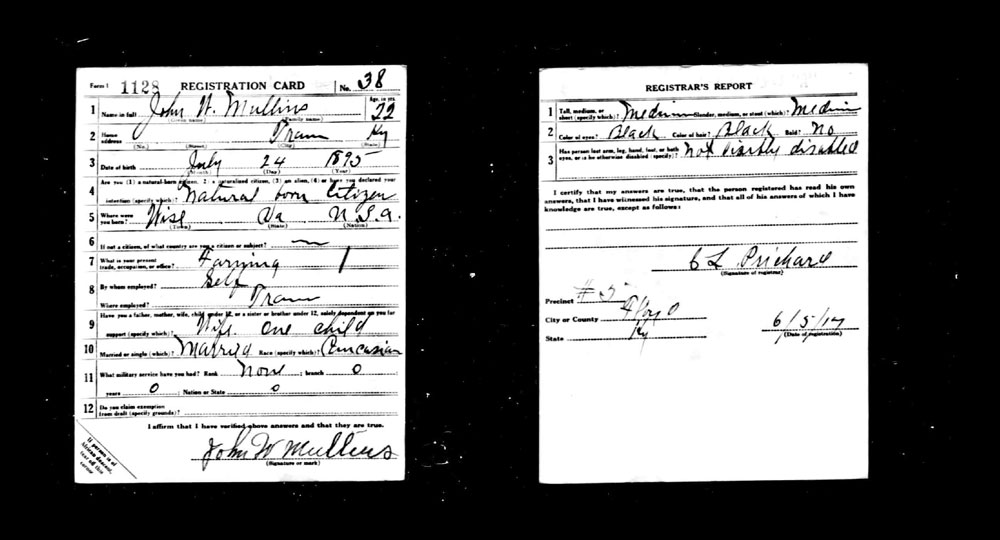 Form 1 1128 REGISTRATION CARD No. 38
1 Name in full John W. Mullins Age, in yrs. 22
(Given name) (Family name)
2 Home address Tram Ky
(No.) (Street) (City) (State)
3 Date of birth July 24 1895
(Month) (Day) (Year)
4 Are you (1) a natural-born citizen, (2) a naturalized citizen, (3) an alien, (4) or have you declared your
intention (specify which)? Natural born Citizen
5 Where were you born? Wise Va U.S.A.
(Town) (State) (Nation)
6 If not a citizen, of what country are you a citizen or subject?
7 What is your present trade, occupation, or office? Farming
8 By whom employed? Self
Where employed? Tram
9 Have you a father, mother, wife, child under 12, or a sister or brother under 12, solely dependent on you for
support (specify which)? Wife. One child
10 Married or single (which)? Married Race (specify which)? Caucasian
11 What military service have you had? Rank None ; branch 0 ;
years 0 ; Nation or State 0
12 Do you claim exemption from draft (specify grounds)?
I affirm that I have verified above answers and that they are true.
John W Mullins
(Signature or mark)
If person is of African descent, tear off this corner
REGISTRAR'S REPORT
1 Tall, medium, or short (specify which)? Medium Slender, medium, or stout (which)? Medium
2 Color of eyes? Black Color of hair? Black Bald? No
3 Has person lost arm, leg, hand, foot, or both eyes, or is he otherwise disabled (specify)? Not visibly disabled
I certify that my answers are true, that the person registered has read his own
answers, that I have witnessed his signature, and that all of his answers of which I have
knowledge are true, except as follows:
C L Prichard
(Signature of registrar)
Precinct # 5
City or County Floyd
State Ky
6/5/17
(Date of registration)